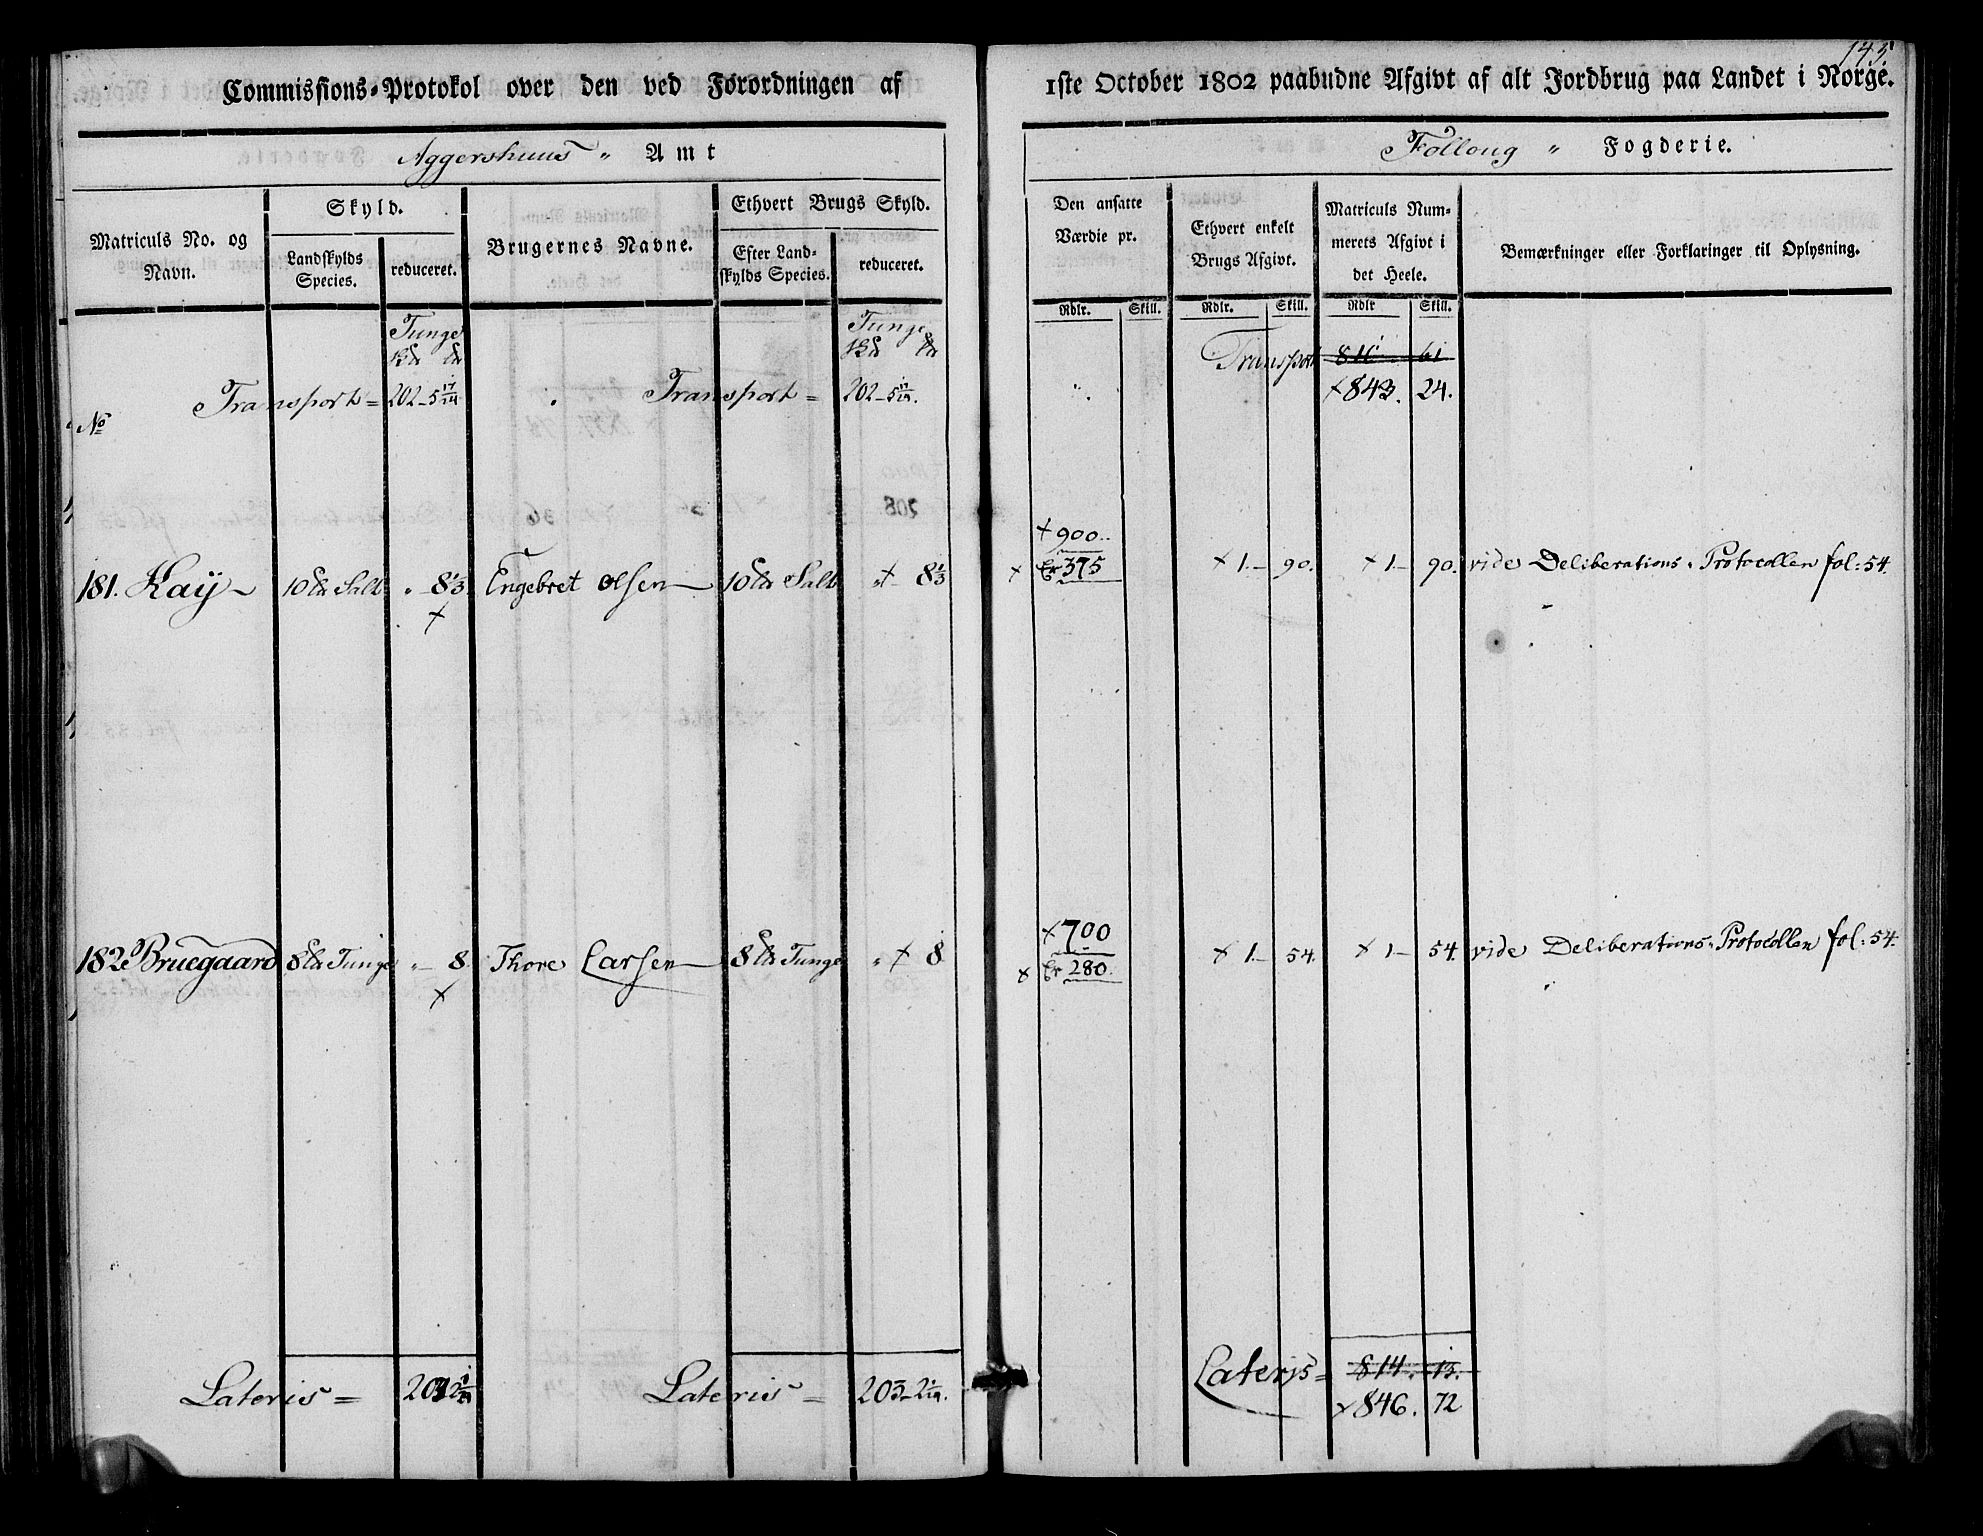 145.
Commissions-Protokol over den ved Forordningen af 1ste October 1802 paabudne Afgivt af alt Jordbrug paa Landet i Norge.
Aggershuus " Amt
Follong " Fogderie.
Matriculs No. og Navn.
Skyld.
Landskylds Species.
reduceret.
Brugernes Navne.
Ethvert Brugs Skyld.
Efter Landskylds Species.
reduceret.
Den ansatte Værdie pr.
Ethvert enkelt Brugs Afgivt.
Matriculs Nummerets Afgivt i det Heele.
Bemærkninger eller Forklaringer til Oplysning.
Rdlr. Skill. Rdlr. Skill. Rdlr Skill.
Tunge Tunge
Transport 811 61
No Transport = 202-5 17/24 Transport = 202-5 17/24. + 843. 24.
+ 900..
181. Kaÿ 10 Salt " 8 1/3 Engebret Olsen 10 Salt " + 8 1/3 + Er 375 + 1.- 90. + 1- 90. vide Deliberations-Protocollen fol: 54.
+
+ 700
182 Bruegaard 8 Tunge " - 8. Thore Larsen 8 Tunge " + 8 + Er 280. + 1.- 54. + 1- 54. vide Deliberations-Protocollen fol: 54.
+
Lateris = 203 2 1/24 Lateris = 203-2 1/24. Lateris = 814. 13.
+ 846. 72